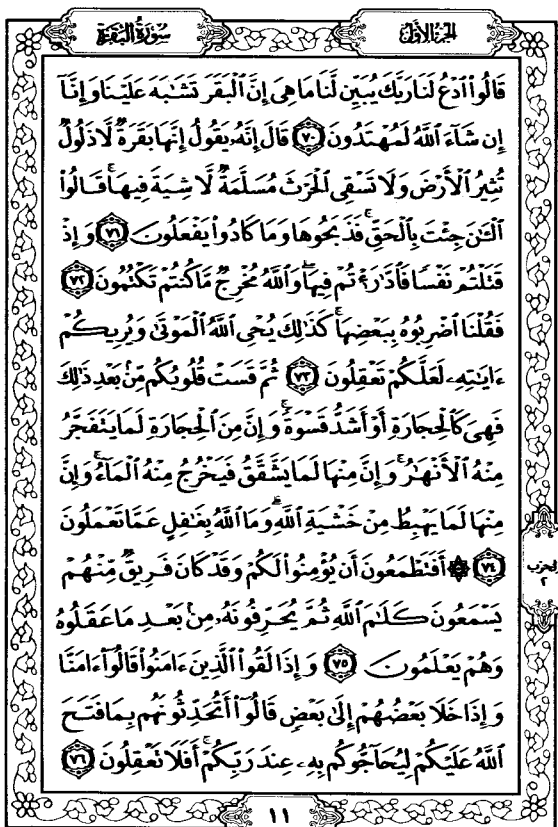 سُورَةُ البَقَرَةِ
الجُزءُ الأوّلُ
قَالُوا۟ ٱدْعُ لَنَا رَبَّكَ يُبَيِّن لَّنَا مَا هِىَ إِنَّ ٱلْبَقَرَ تَشَٰبَهَ عَلَيْنَا وَإِنَّآ
إِن شَآءَ ٱللَّهُ لَمُهْتَدُونَ ﴿٧٠﴾ قَالَ إِنَّهُۥ يَقُولُ إِنَّهَا بَقَرَةٌ لَّا ذَلُولٌ
تُثِيرُ ٱلْأَرْضَ وَلَا تَسْقِى ٱلْحَرْثَ مُسَلَّمَةٌ لَّا شِيَةَ فِيهَا ۚ قَالُوا۟
ٱلْـَٰٔنَ جِئْتَ بِٱلْحَقِّ ۚ فَذَبَحُوهَا وَمَا كَادُوا۟ يَفْعَلُونَ ﴿٧١﴾ وَإِذْ
قَتَلْتُمْ نَفْسًا فَٱدَّٰرَْٰٔتُمْ فِيهَا ۖ وَٱللَّهُ مُخْرِجٌ مَّا كُنتُمْ تَكْتُمُونَ ﴿٧٢﴾
فَقُلْنَا ٱضْرِبُوهُ بِبَعْضِهَا ۚ كَذَٰلِكَ يُحْىِ ٱللَّهُ ٱلْمَوْتَىٰ وَيُرِيكُمْ
ءَايَٰتِهِۦ لَعَلَّكُمْ تَعْقِلُونَ ﴿٧٣﴾ ثُمَّ قَسَتْ قُلُوبُكُم مِّنۢ بَعْدِ ذَٰلِكَ
فَهِىَ كَٱلْحِجَارَةِ أَوْ أَشَدُّ قَسْوَةً ۚ وَإِنَّ مِنَ ٱلْحِجَارَةِ لَمَا يَتَفَجَّرُ
مِنْهُ ٱلْأَنْهَٰرُ ۚ وَإِنَّ مِنْهَا لَمَا يَشَّقَّقُ فَيَخْرُجُ مِنْهُ ٱلْمَآءُ ۚ وَإِنَّ
مِنْهَا لَمَا يَهْبِطُ مِنْ خَشْيَةِ ٱللَّهِ ۗ وَمَا ٱللَّهُ بِغَٰفِلٍ عَمَّا تَعْمَلُونَ
﴿٧٤﴾ ۞ أَفَتَطْمَعُونَ أَن يُؤْمِنُوا۟ لَكُمْ وَقَدْ كَانَ فَرِيقٌ مِّنْهُمْ
يَسْمَعُونَ كَلَٰمَ ٱللَّهِ ثُمَّ يُحَرِّفُونَهُۥ مِنۢ بَعْدِ مَا عَقَلُوهُ
وَهُمْ يَعْلَمُونَ ﴿٧٥﴾ وَإِذَا لَقُوا۟ ٱلَّذِينَ ءَامَنُوا۟ قَالُوٓا۟ ءَامَنَّا
وَإِذَا خَلَا بَعْضُهُمْ إِلَىٰ بَعْضٍ قَالُوٓا۟ أَتُحَدِّثُونَهُم بِمَا فَتَحَ
ٱللَّهُ عَلَيْكُمْ لِيُحَآجُّوكُم بِهِۦ عِندَ رَبِّكُمْ ۚ أَفَلَا تَعْقِلُونَ ﴿٧٦﴾
الحزب
٢
١١